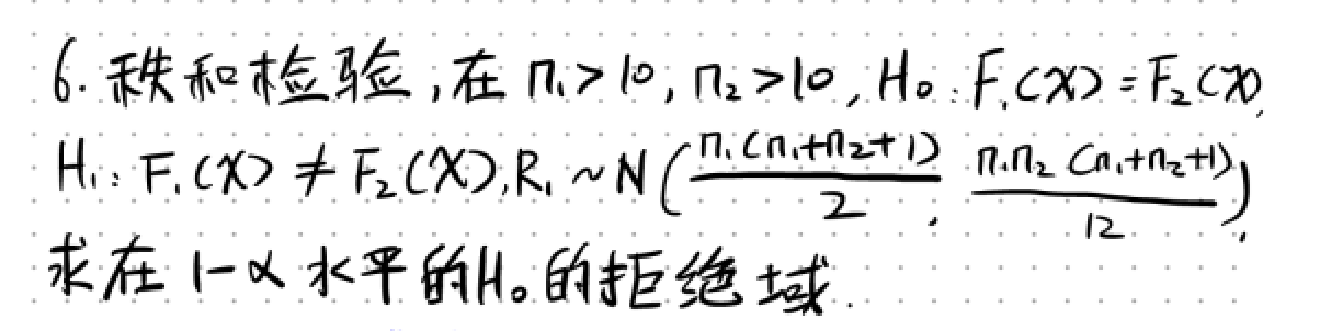 6. 秩和检验，在 n₁>10, n₂>10, H₀: F₁(X) = F₂(X),
H₁: F₁(X) ≠ F₂(X), R₁ ~ N(\frac{n₁(n₁+n₂+1)}{2}, \frac{n₁n₂(n₁+n₂+1)}{12}),
求在 1-α 水平的H₀的拒绝域.